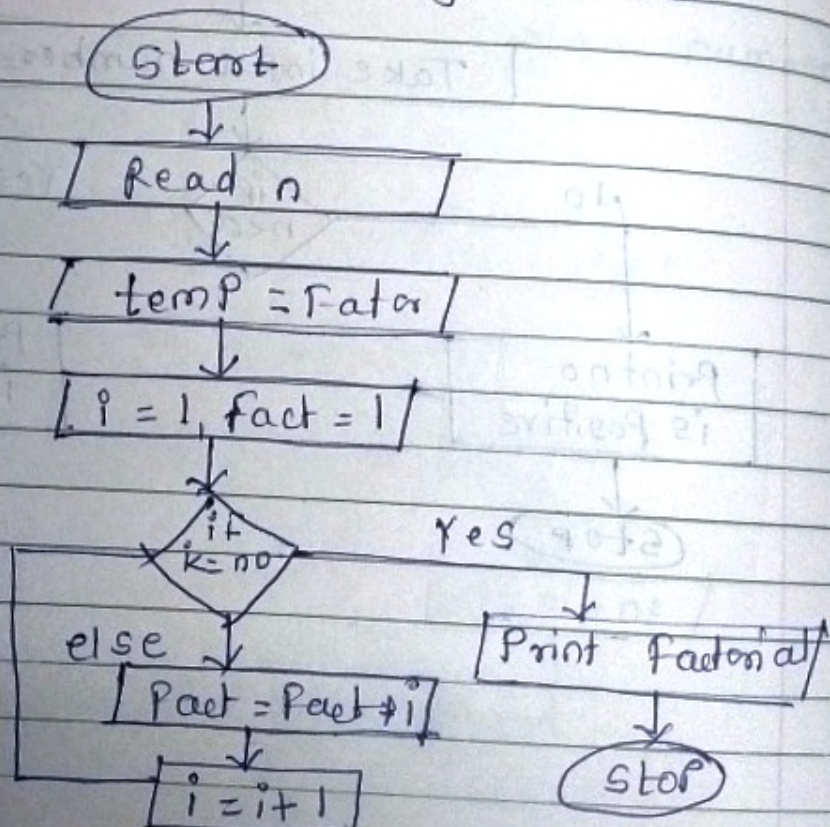 Start
Read n
temp = Fator
i = 1, fact = 1
if
i<=no
Yes
else
Print factorial
Fact = Fact * i
Stop
i = i + 1